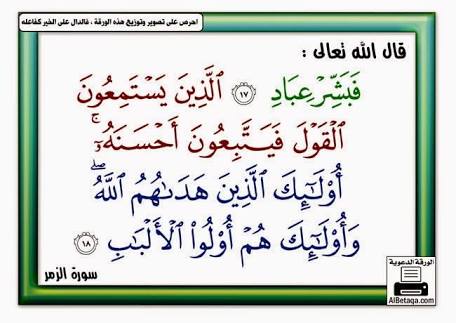 احرص على تصوير وتوزيع هذه الورقة ، فالدال على الخير كفاعله
قال الله تعالى :
فَبَشِّرْ عِبَادِ ١٧ ٱلَّذِينَ يَسْتَمِعُونَ
ٱلْقَوْلَ فَيَتَّبِعُونَ أَحْسَنَهُۥٓ ۚ
أُو۟لَٰٓئِكَ ٱلَّذِينَ هَدَىٰهُمُ ٱللَّهُ ۖ
وَأُو۟لَٰٓئِكَ هُمْ أُو۟لُوا۟ ٱلْأَلْبَٰبِ ١٨
سورة الزمر
الورقة الدعوية
AlBetaqa.com